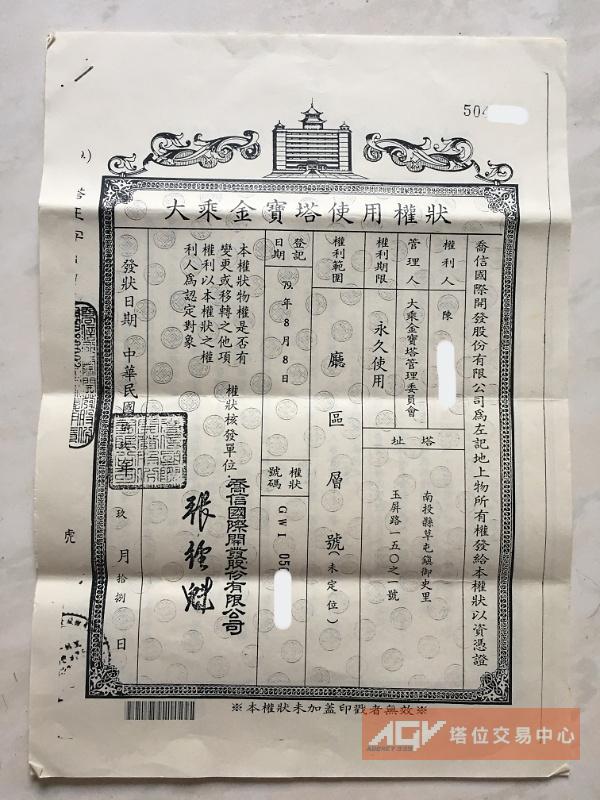 504
大乘金寶塔使用權狀
喬信國際開發股份有限公司為左記地上物所有權發給本權狀以資憑證
權利人 陳
管理人 大乘金寶塔管理委員會
塔址 南投縣草屯鎮御史里
玉屏路一五〇之一號
權利期限 永久使用
權利範圍 廳區層號(未定位)
登記日期 79年8月8日
權狀號碼 GW1 050
本權狀物權是否有
變更或移轉之他項
權利以本權狀之權
利人為認定對象
權狀核發單位:喬信國際開發股份有限公司
發狀日期 中華民國
年 玖月拾捌日
虎
※本權狀未加蓋印戳者無效※
AGV 塔位交易中心